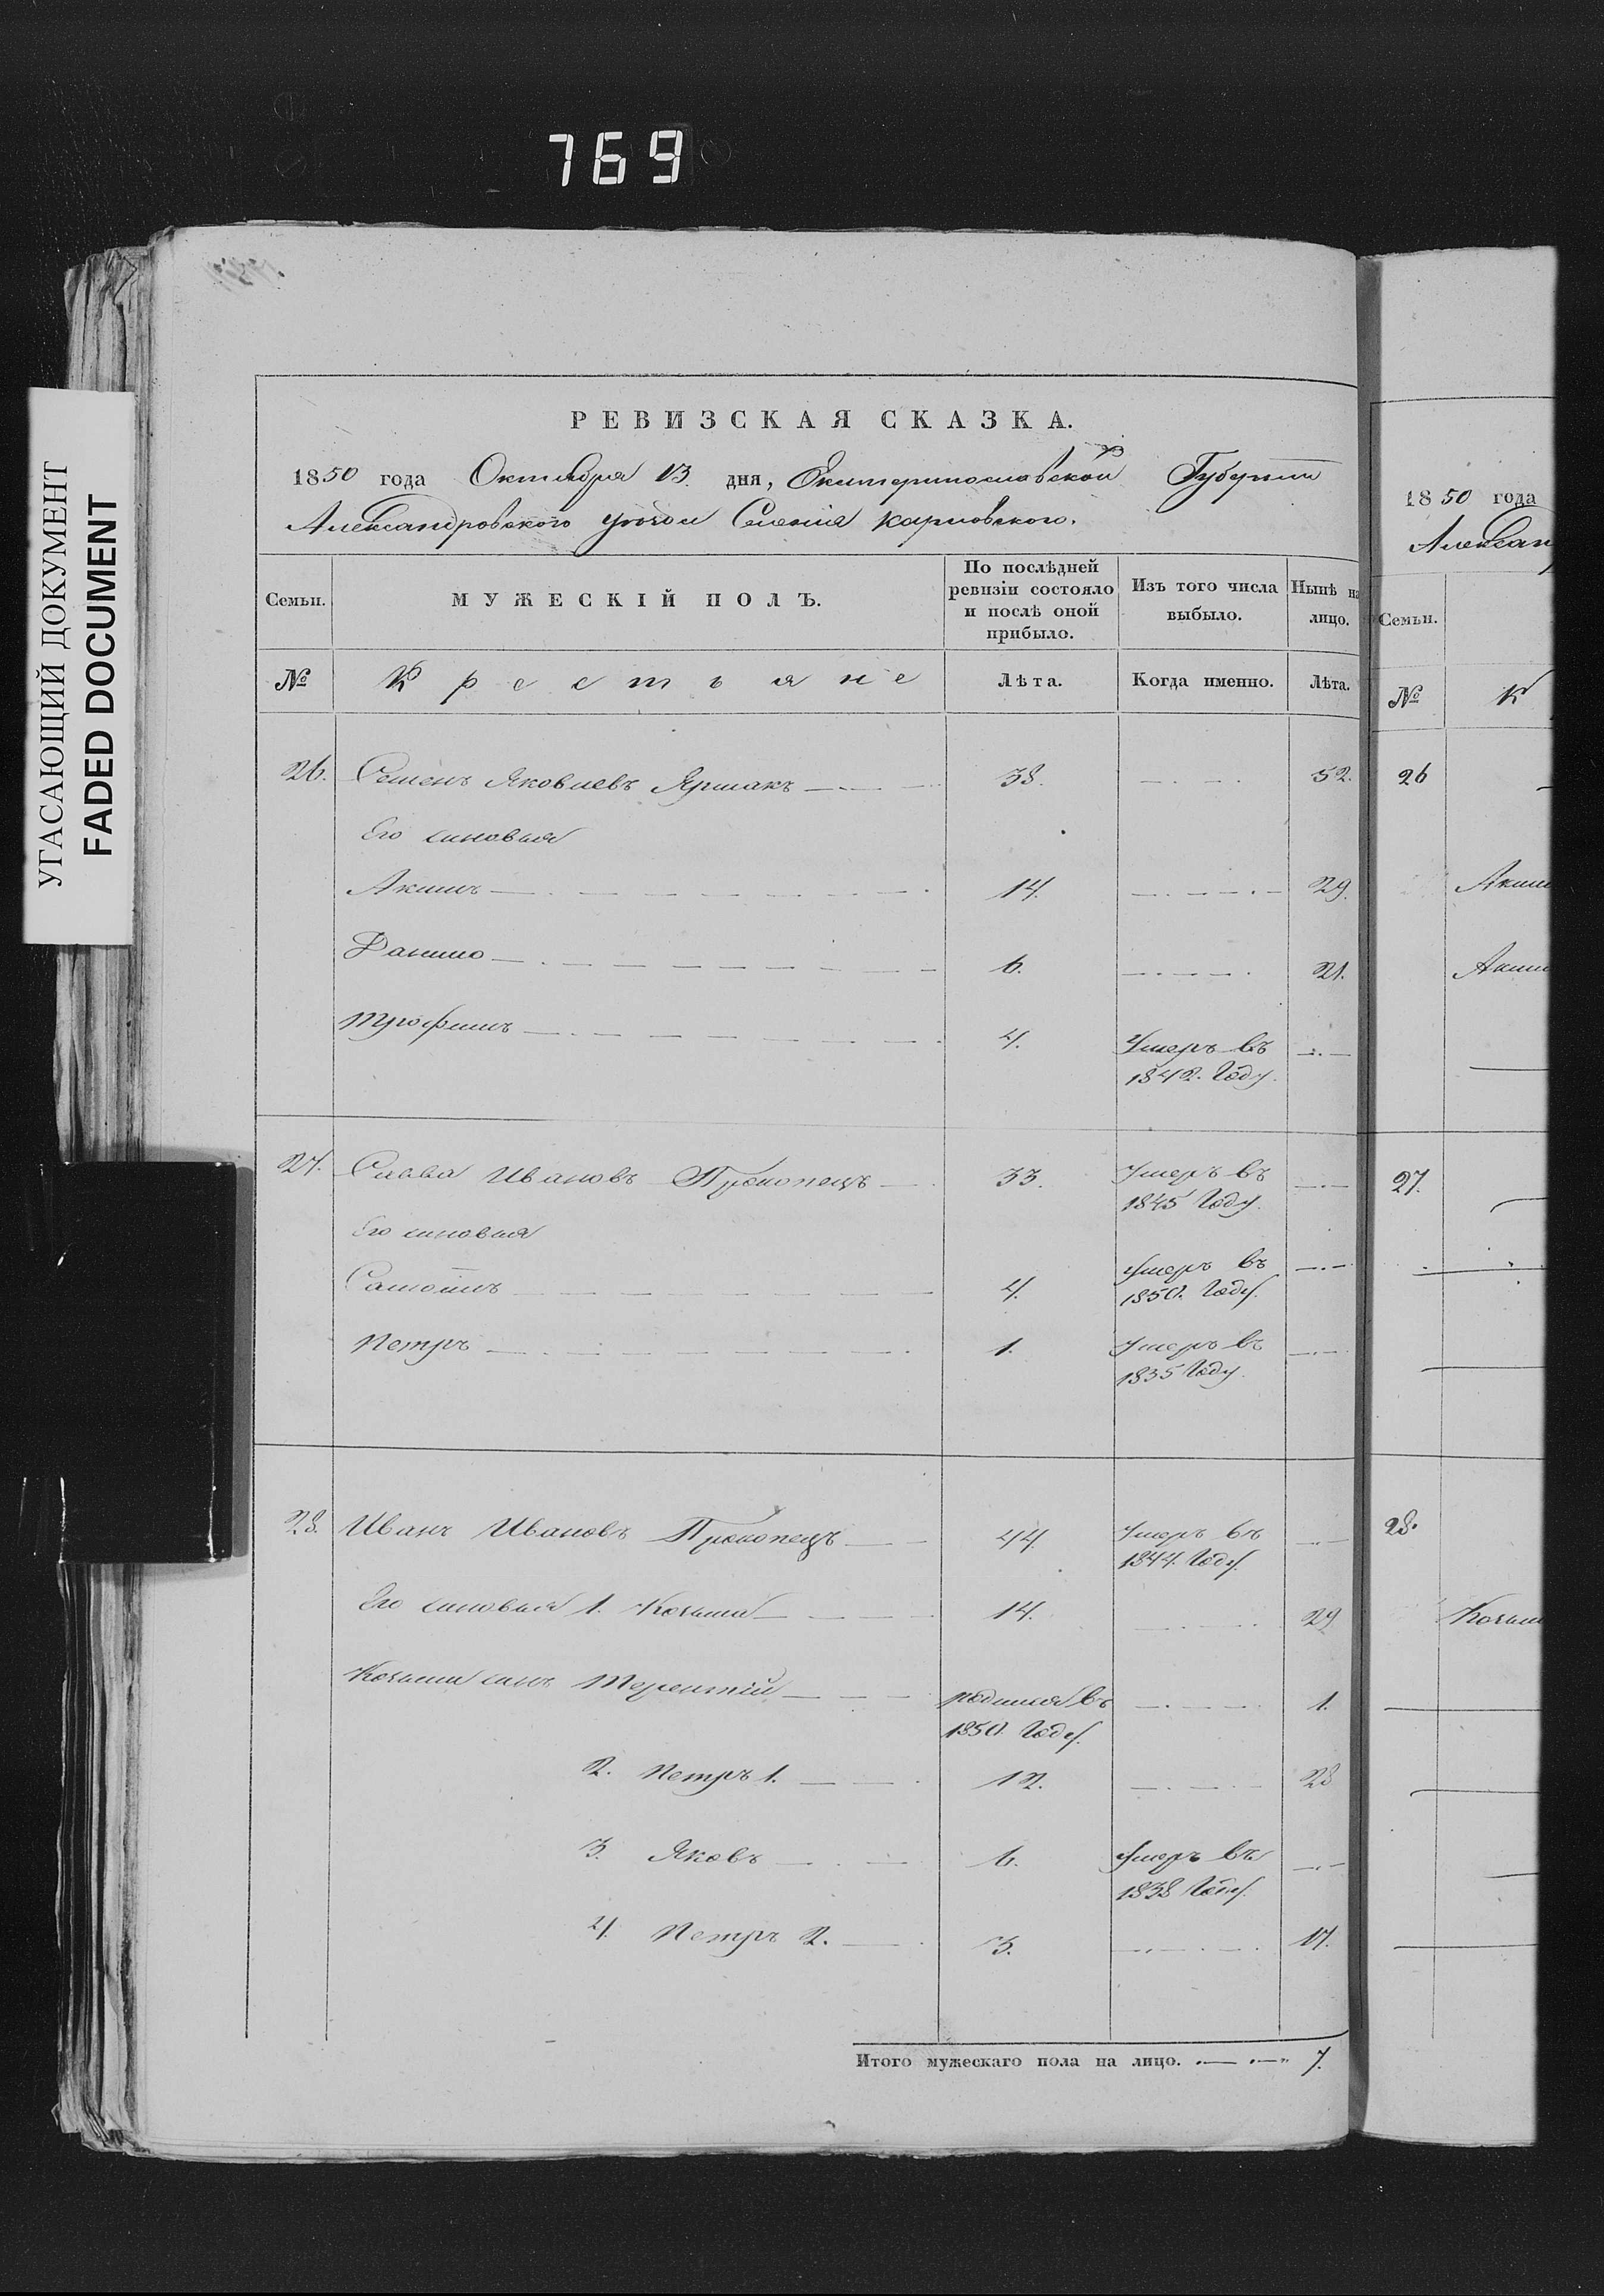 769
УГАСАЮЩИЙ ДОКУМЕНТ
FADED DOCUMENT
РЕВИЗСКАЯ СКАЗКА.
1850 года Октября 13 дня, Екатеринославской Губернии
Александровского уезда Селения Карповского.
Семьи. МУЖЕСКІЙ ПОЛЪ. По послѣдней ревизіи состояло и послѣ оной прибыло. Изъ того числа выбыло. Нынѣ на лицо.
№ Крестьяне Лѣта. Когда именно. Лѣта.
26. Семенъ Яковлевъ Ярмакъ 38. 52.
Его сыновья
Акимъ 14. 29.
Данило 6. 21.
Трофимъ 4. Умеръ въ
1842. Году.
27. Савва Ивановъ Прокопецъ 33. Умеръ въ
1845 Году.
Его сыновья
4. Умеръ въ
1850. Году.
Петръ 1. Умеръ въ
1835 Году.
28. Иванъ Ивановъ Прокопецъ 44. Умеръ въ
1844. Году.
Его сыновья 1. Козьма 14. 29
Козьмы сынъ Терентій родился въ 1.
1850. Году.
2. Петръ 1. 12. 28
3. Яковъ 6. Умеръ въ
1838 Году.
4. Петръ 2. 3. 17.
Итого мужескаго пола на лицо. 7.
1850 года
Александ
Семьи.
№ К
26
Аким
Аким
27.
28.
Козьм